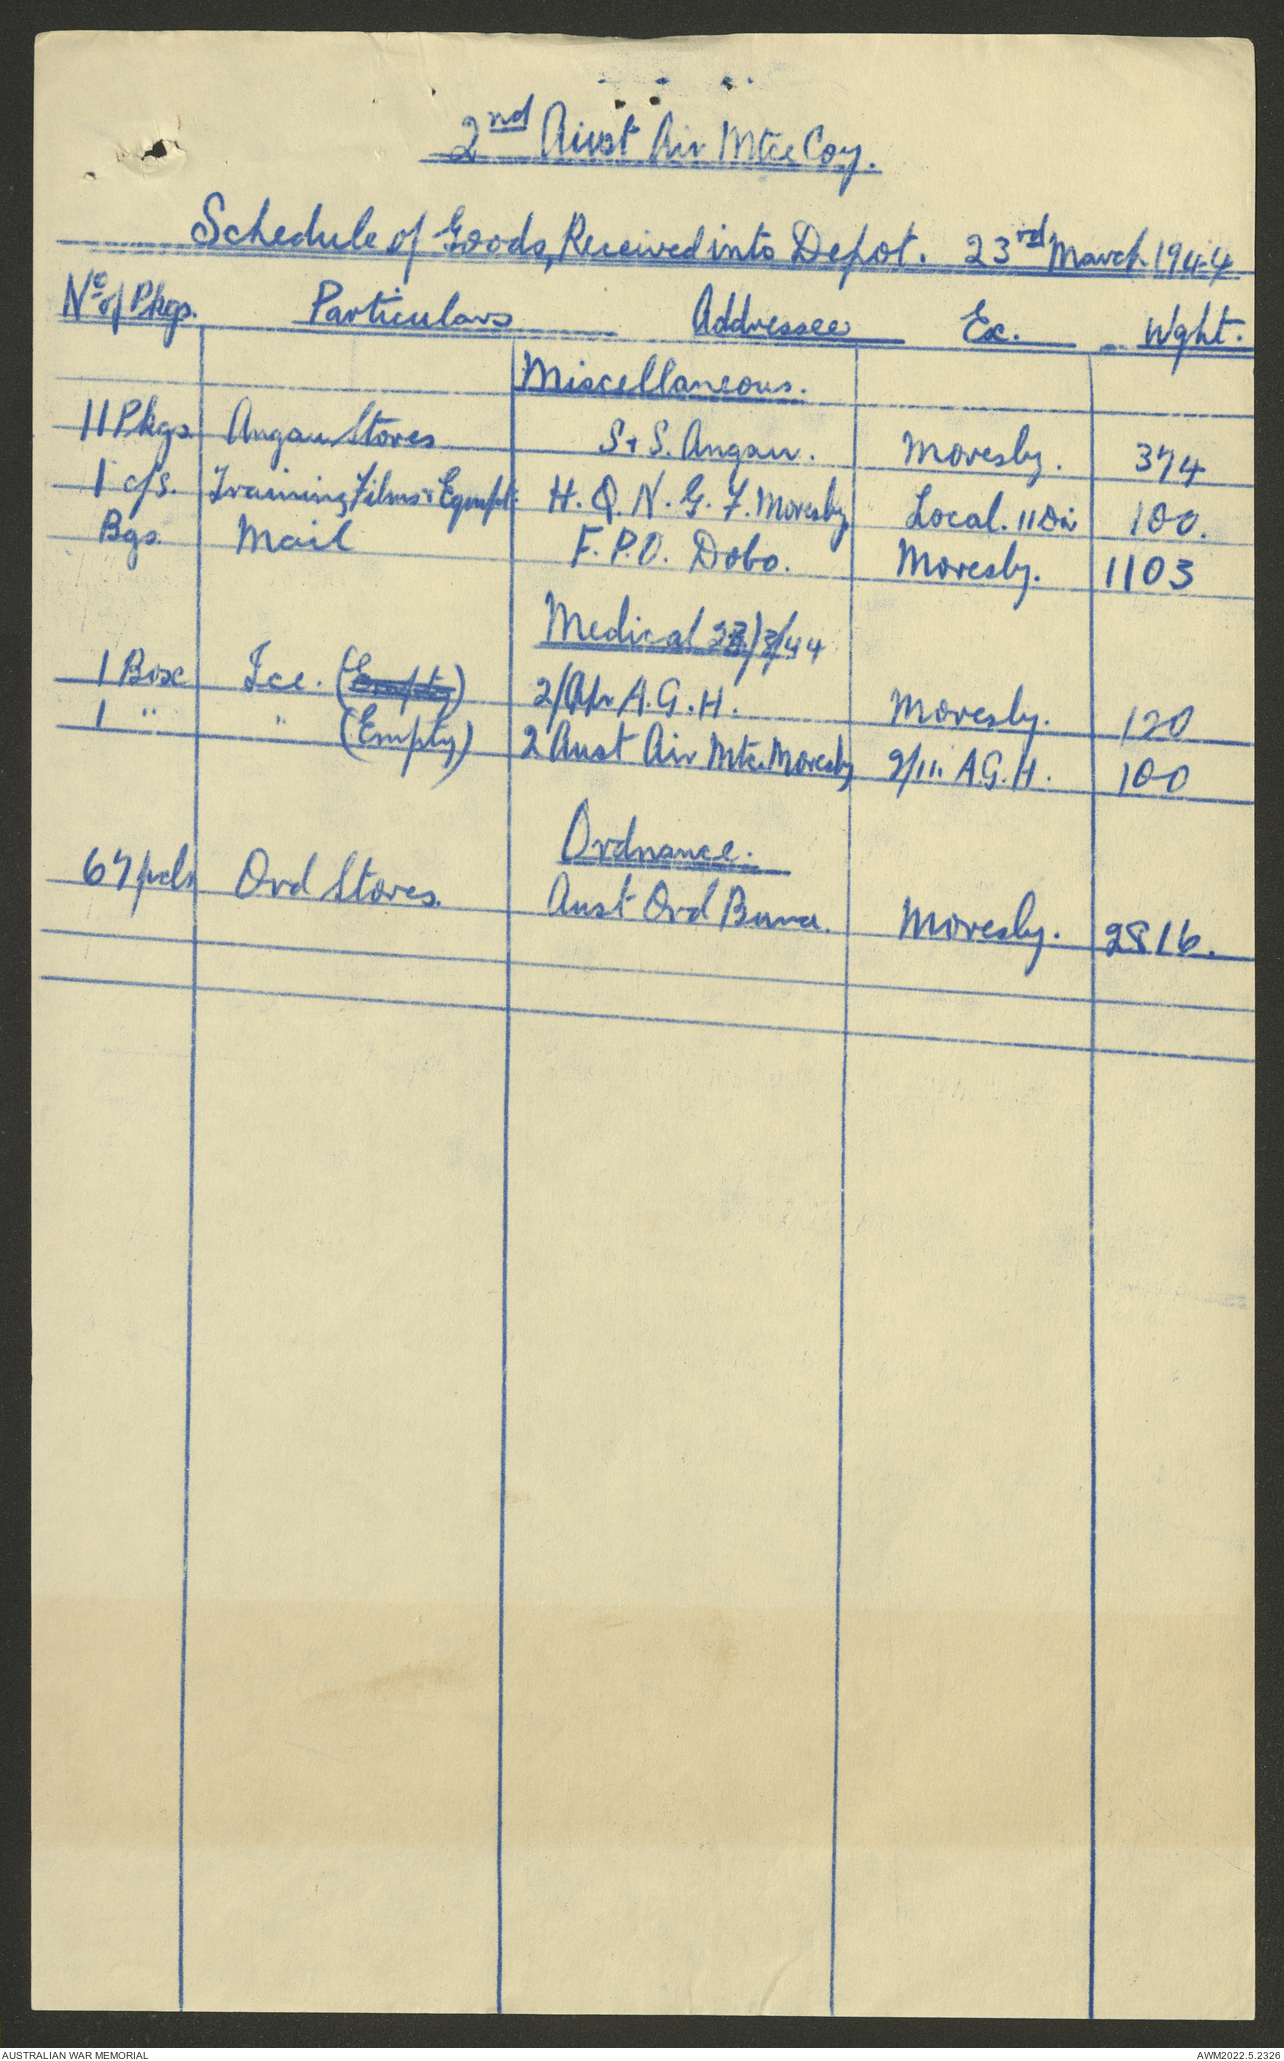 2nd Aust Air Mtce Coy.
Schedule of Goods, Received into Depot. 23rd March 1944
No of Pkgs. Particulars Addressee Ex. Wght.
Miscellaneous.
11 Pkgs Angau Stores S & S. Angau. Moresby. 374
1 c/s. Training Films & Equipt H.Q.N.G.F. Moresby Local. 11 Div 100.
Bgs. Mail F.P.O. Dobo. Moresby. 1103
Medical 23/3/44
1 Box Ice. (Empty) 2/ A.G.H. Moresby. 120
1 " " (Empty) 2 Aust Air Mtc. Moresby 2/11. A.G.H. 100
Ordnance.
67 pcls Ord Stores. Aust Ord Buna. Moresby. 2816.
AUSTRALIAN WAR MEMORIAL AWM2022.5.2326